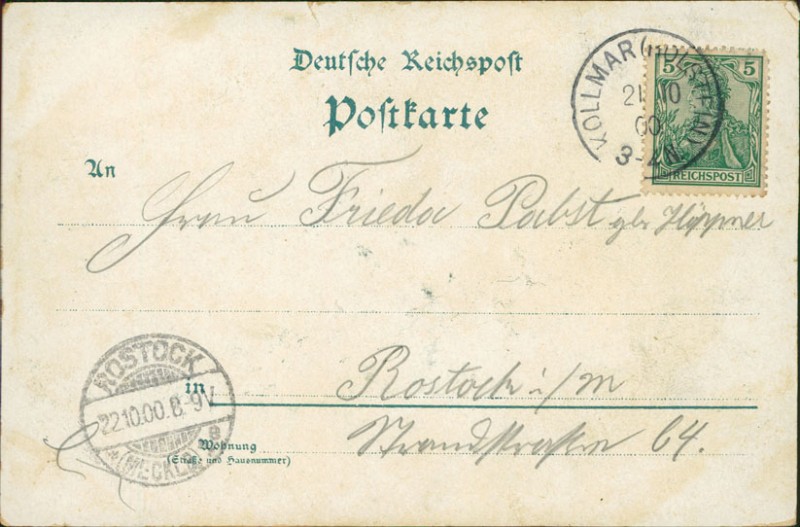 Deutsche Reichspost
Postkarte
VOLLMAR (HOLSTEIN)
21 10
00
3-4N.
5 5
REICHSPOST
An
Frau Frieda Pabst geb Höppner
ROSTOCK
22.10.00.8-9V
e
(MECKLB)
in Rostock i/m
Wohnung
(Straße und Hausnummer)
Strandstraße 64.